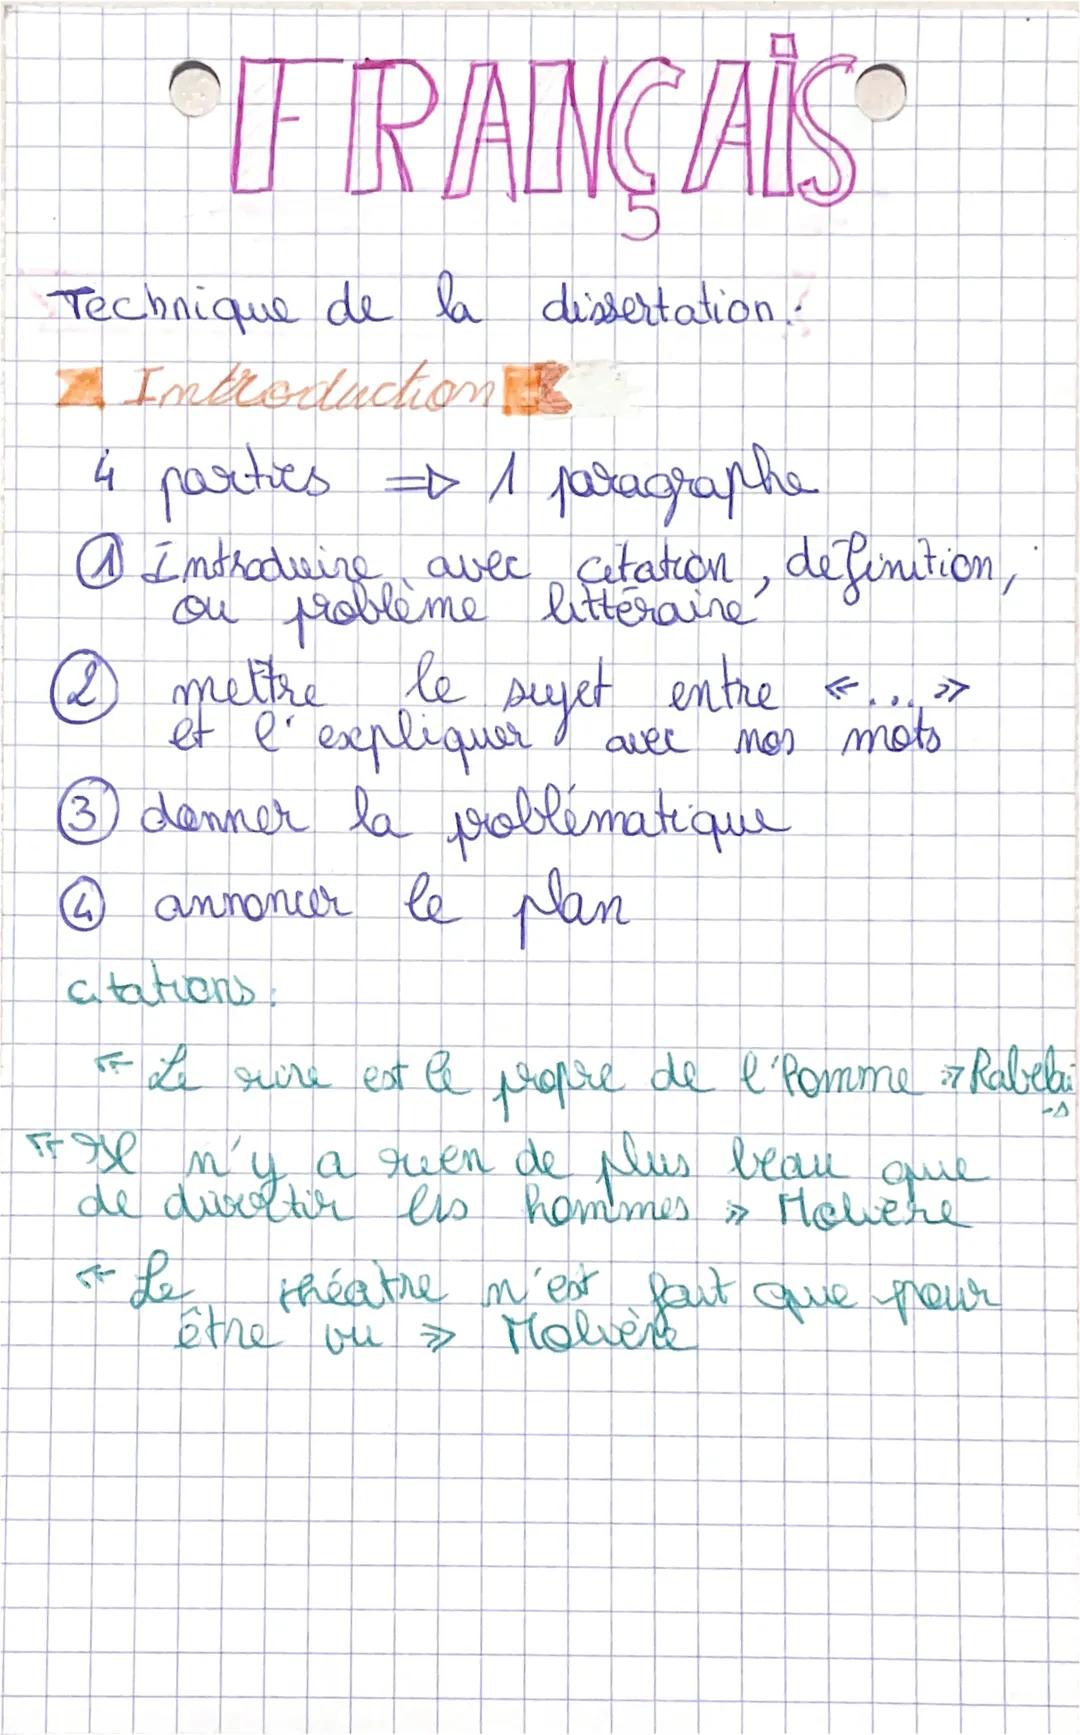 FRANÇAIS
Technique de la dissertation :
Introduction
4 parties => 1 paragraphe
① Introduire avec citation, définition,
ou problème littéraire
② mettre le sujet entre «...»
et l'expliquer avec nos mots
③ donner la problématique
④ annoncer le plan
citations :
« Le rire est le propre de l'homme » Rabelai
-s
« Il n'y a rien de plus beau que
de divertir les hommes » Molière
« Le théâtre n'est fait que pour
être vu » Molière